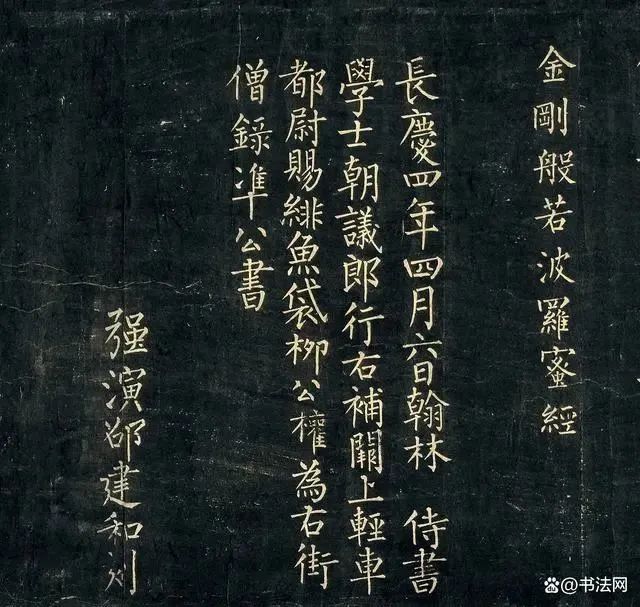 金剛般若波羅蜜經
長慶四年四月六日翰林 侍書
學士朝議郎行右補闕上輕車
都尉賜緋魚袋柳公權為右街
僧錄准公書
强演邵建和刻
@书法网